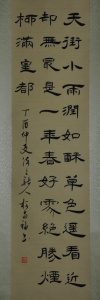 天街小雨潤如酥草色遥看近
却無最是一年春好處絕勝煙
柳滿皇都
丁酉仲夏